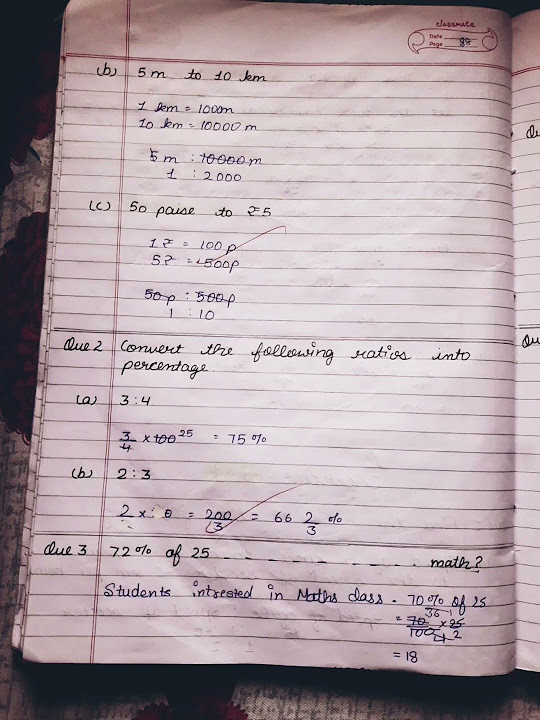 classmate
Date
Page 88
(b) 5 m to 10 km
1 km = 1000m
10 km = 10000 m
5 m : 10000 m
1 : 2000
(c) 50 paise to ₹5
1₹ = 100 p
5₹ = 500p
50 p : 500 p
1 : 10
Que 2 Convert the following ratios into
percentage
(a) 3:4
3/4 × 100 25 = 75 %
(b) 2:3
2 × = 200/3 = 66 2/3 %
Que 3 72% of 25 - - - - - - - - - - - - math?
Students intrested in Maths class - 70% of 25
= 70/100 × 25
36 1
4 2
= 18